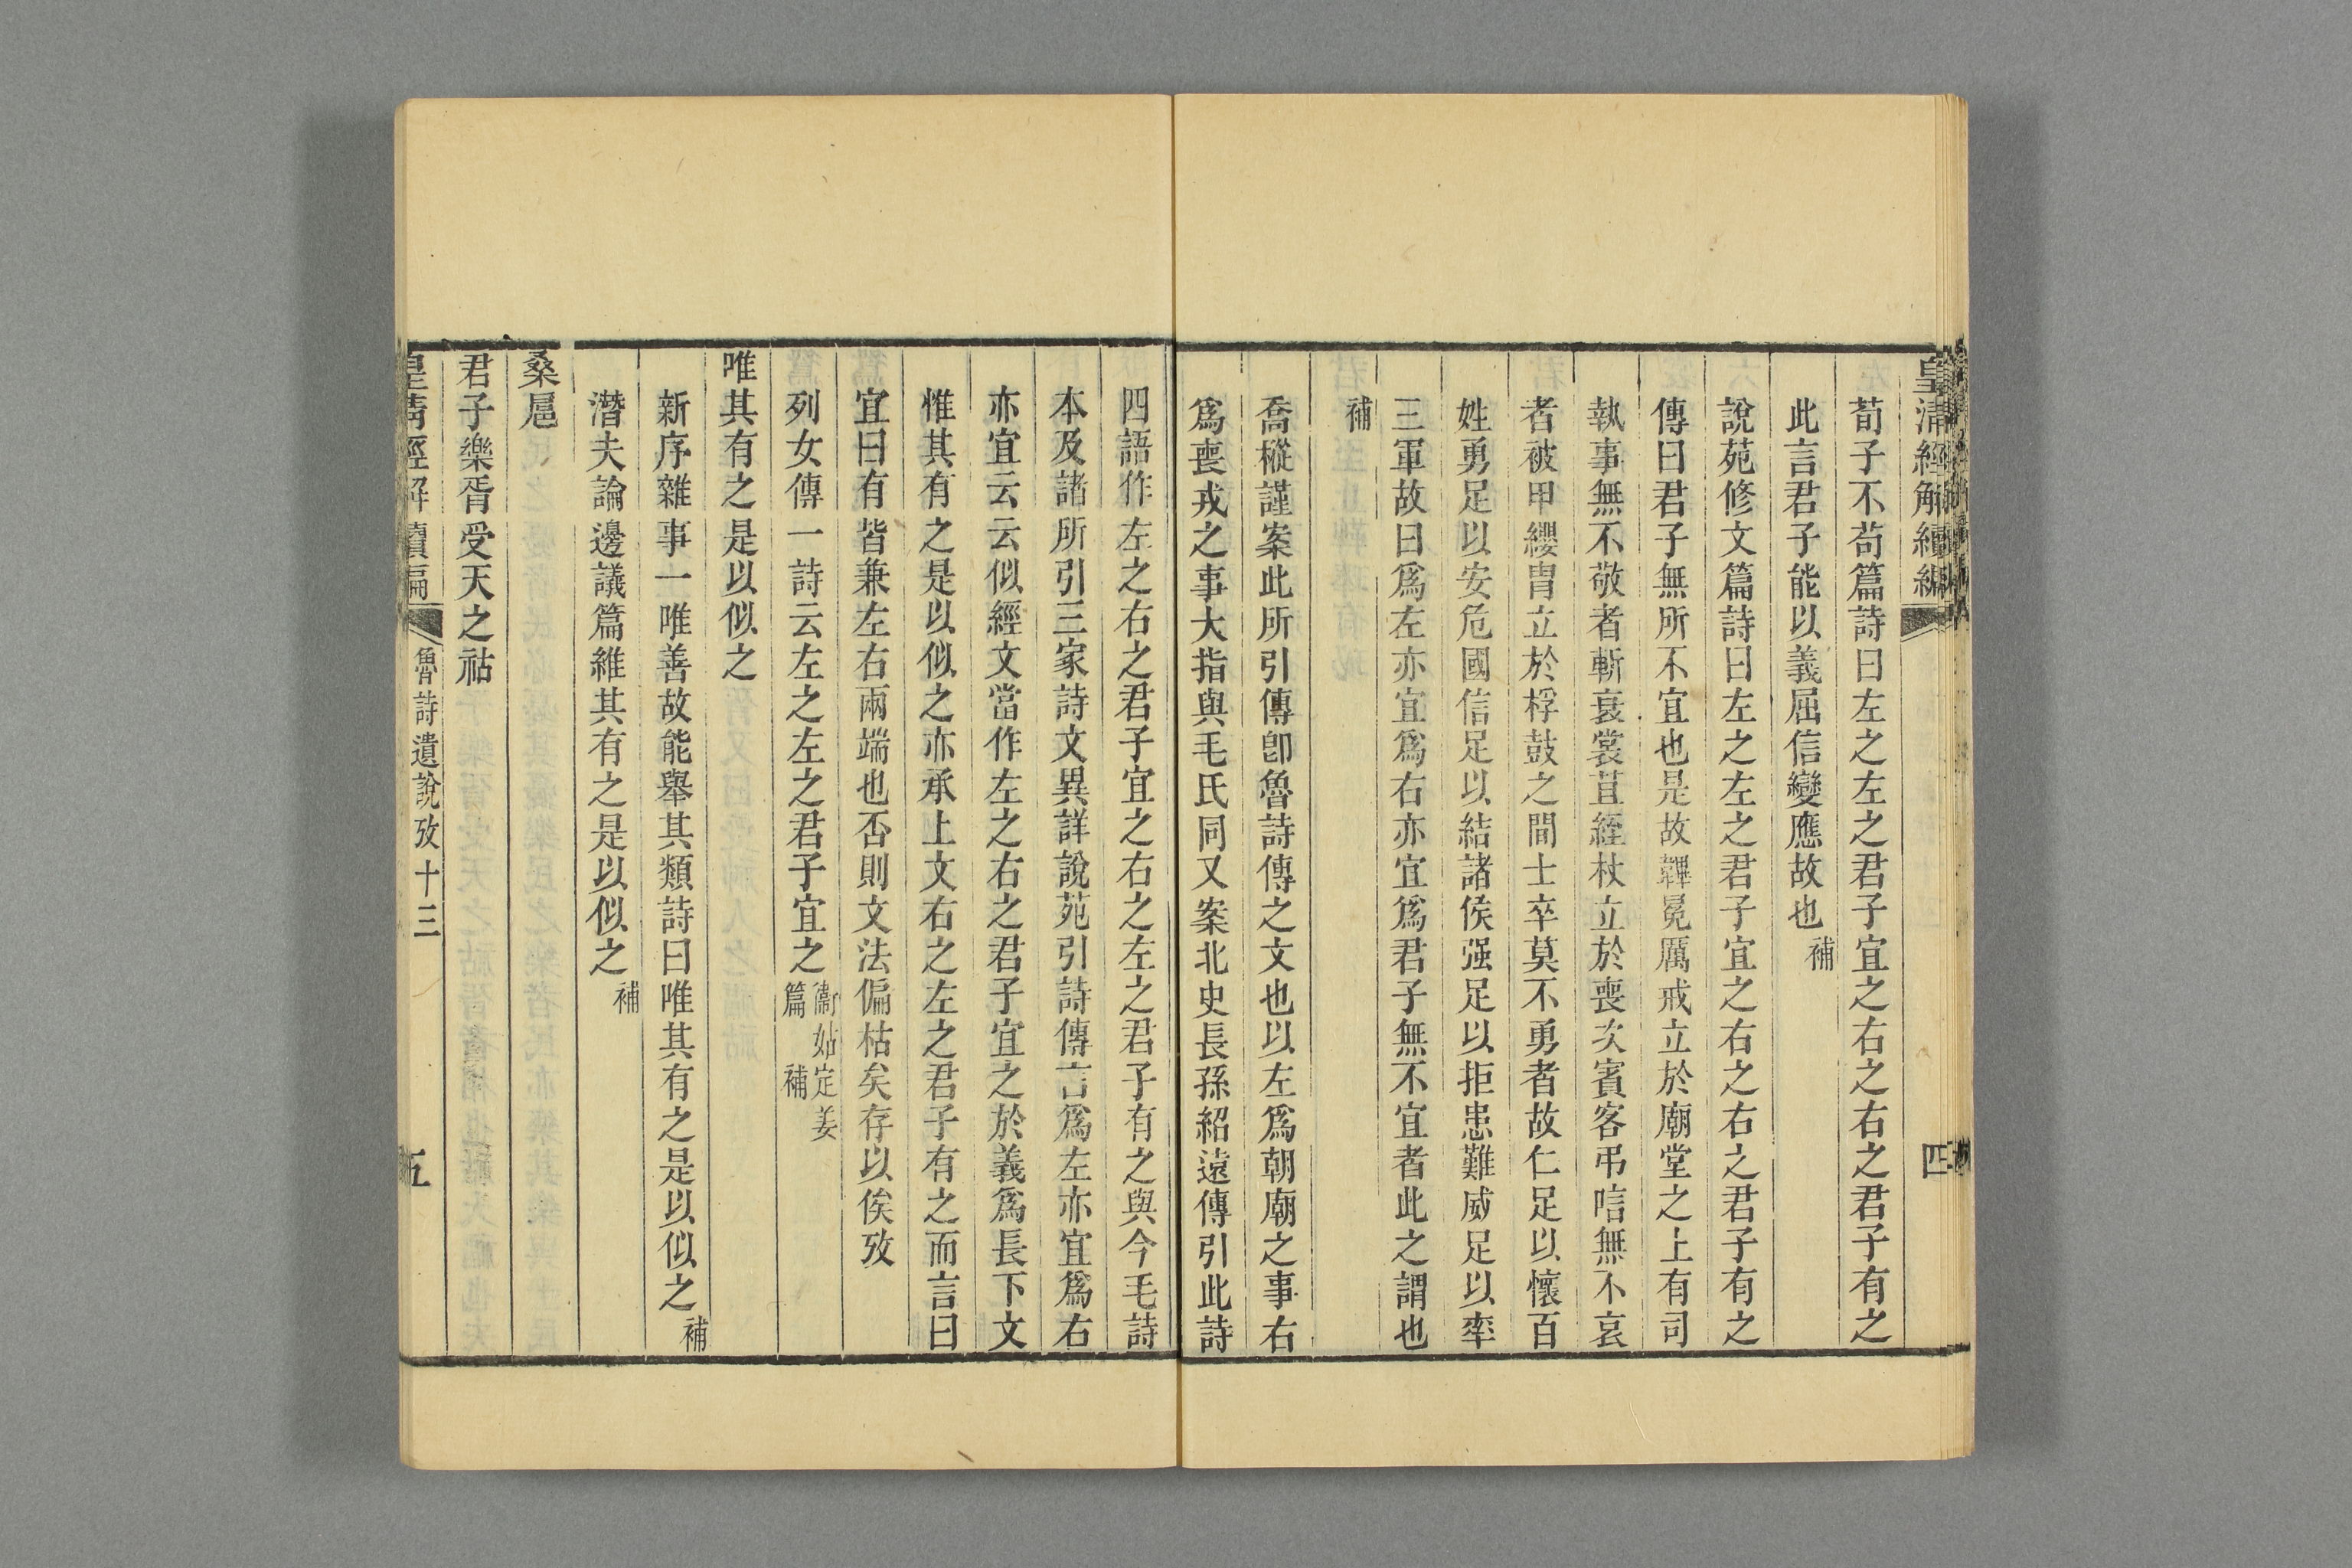 皇清經解續編
四
荀子不苟篇詩曰左之左之君子宜之右之右之君子有之
此言君子能以義屈信變應故也補
說苑修文篇詩曰左之左之君子宜之右之右之君子有之
傳曰君子無所不宜也是故韠冕厲戒立於廟堂之上有司
執事無不敬者斬衰裳苴絰杖立於喪次賓客弔唁無不哀
者被甲纓胄立於桴鼓之間士卒莫不勇者故仁足以懷百
姓勇足以安危國信足以結諸侯强足以拒患難威足以率
三軍故曰爲左亦宜爲右亦宜爲君子無不宜者此之謂也
補
喬樅謹案此所引傳卽魯詩傳之文也以左爲朝廟之事右
爲喪戎之事大指與毛氏同又案北史長孫紹遠傳引此詩
四語作左之右之君子宜之右之左之君子有之與今毛詩
本及諸所引三家詩文異詳說苑引詩傳言爲左亦宜爲右
亦宜云云似經文當作左之右之君子宜之於義爲長下文
惟其有之是以似之亦承上文右之左之君子有之而言曰
宜曰有皆兼左右兩端也否則文法偏枯矣存以俟攷
列女傳一詩云左之左之君子宜之衞姑定姜篇補
唯其有之是以似之
新序雜事一唯善故能舉其類詩曰唯其有之是以似之補
潛夫論邊議篇維其有之是以似之補
桑扈
君子樂胥受天之祜
皇清經解續編
魯詩遺說攷十三
五